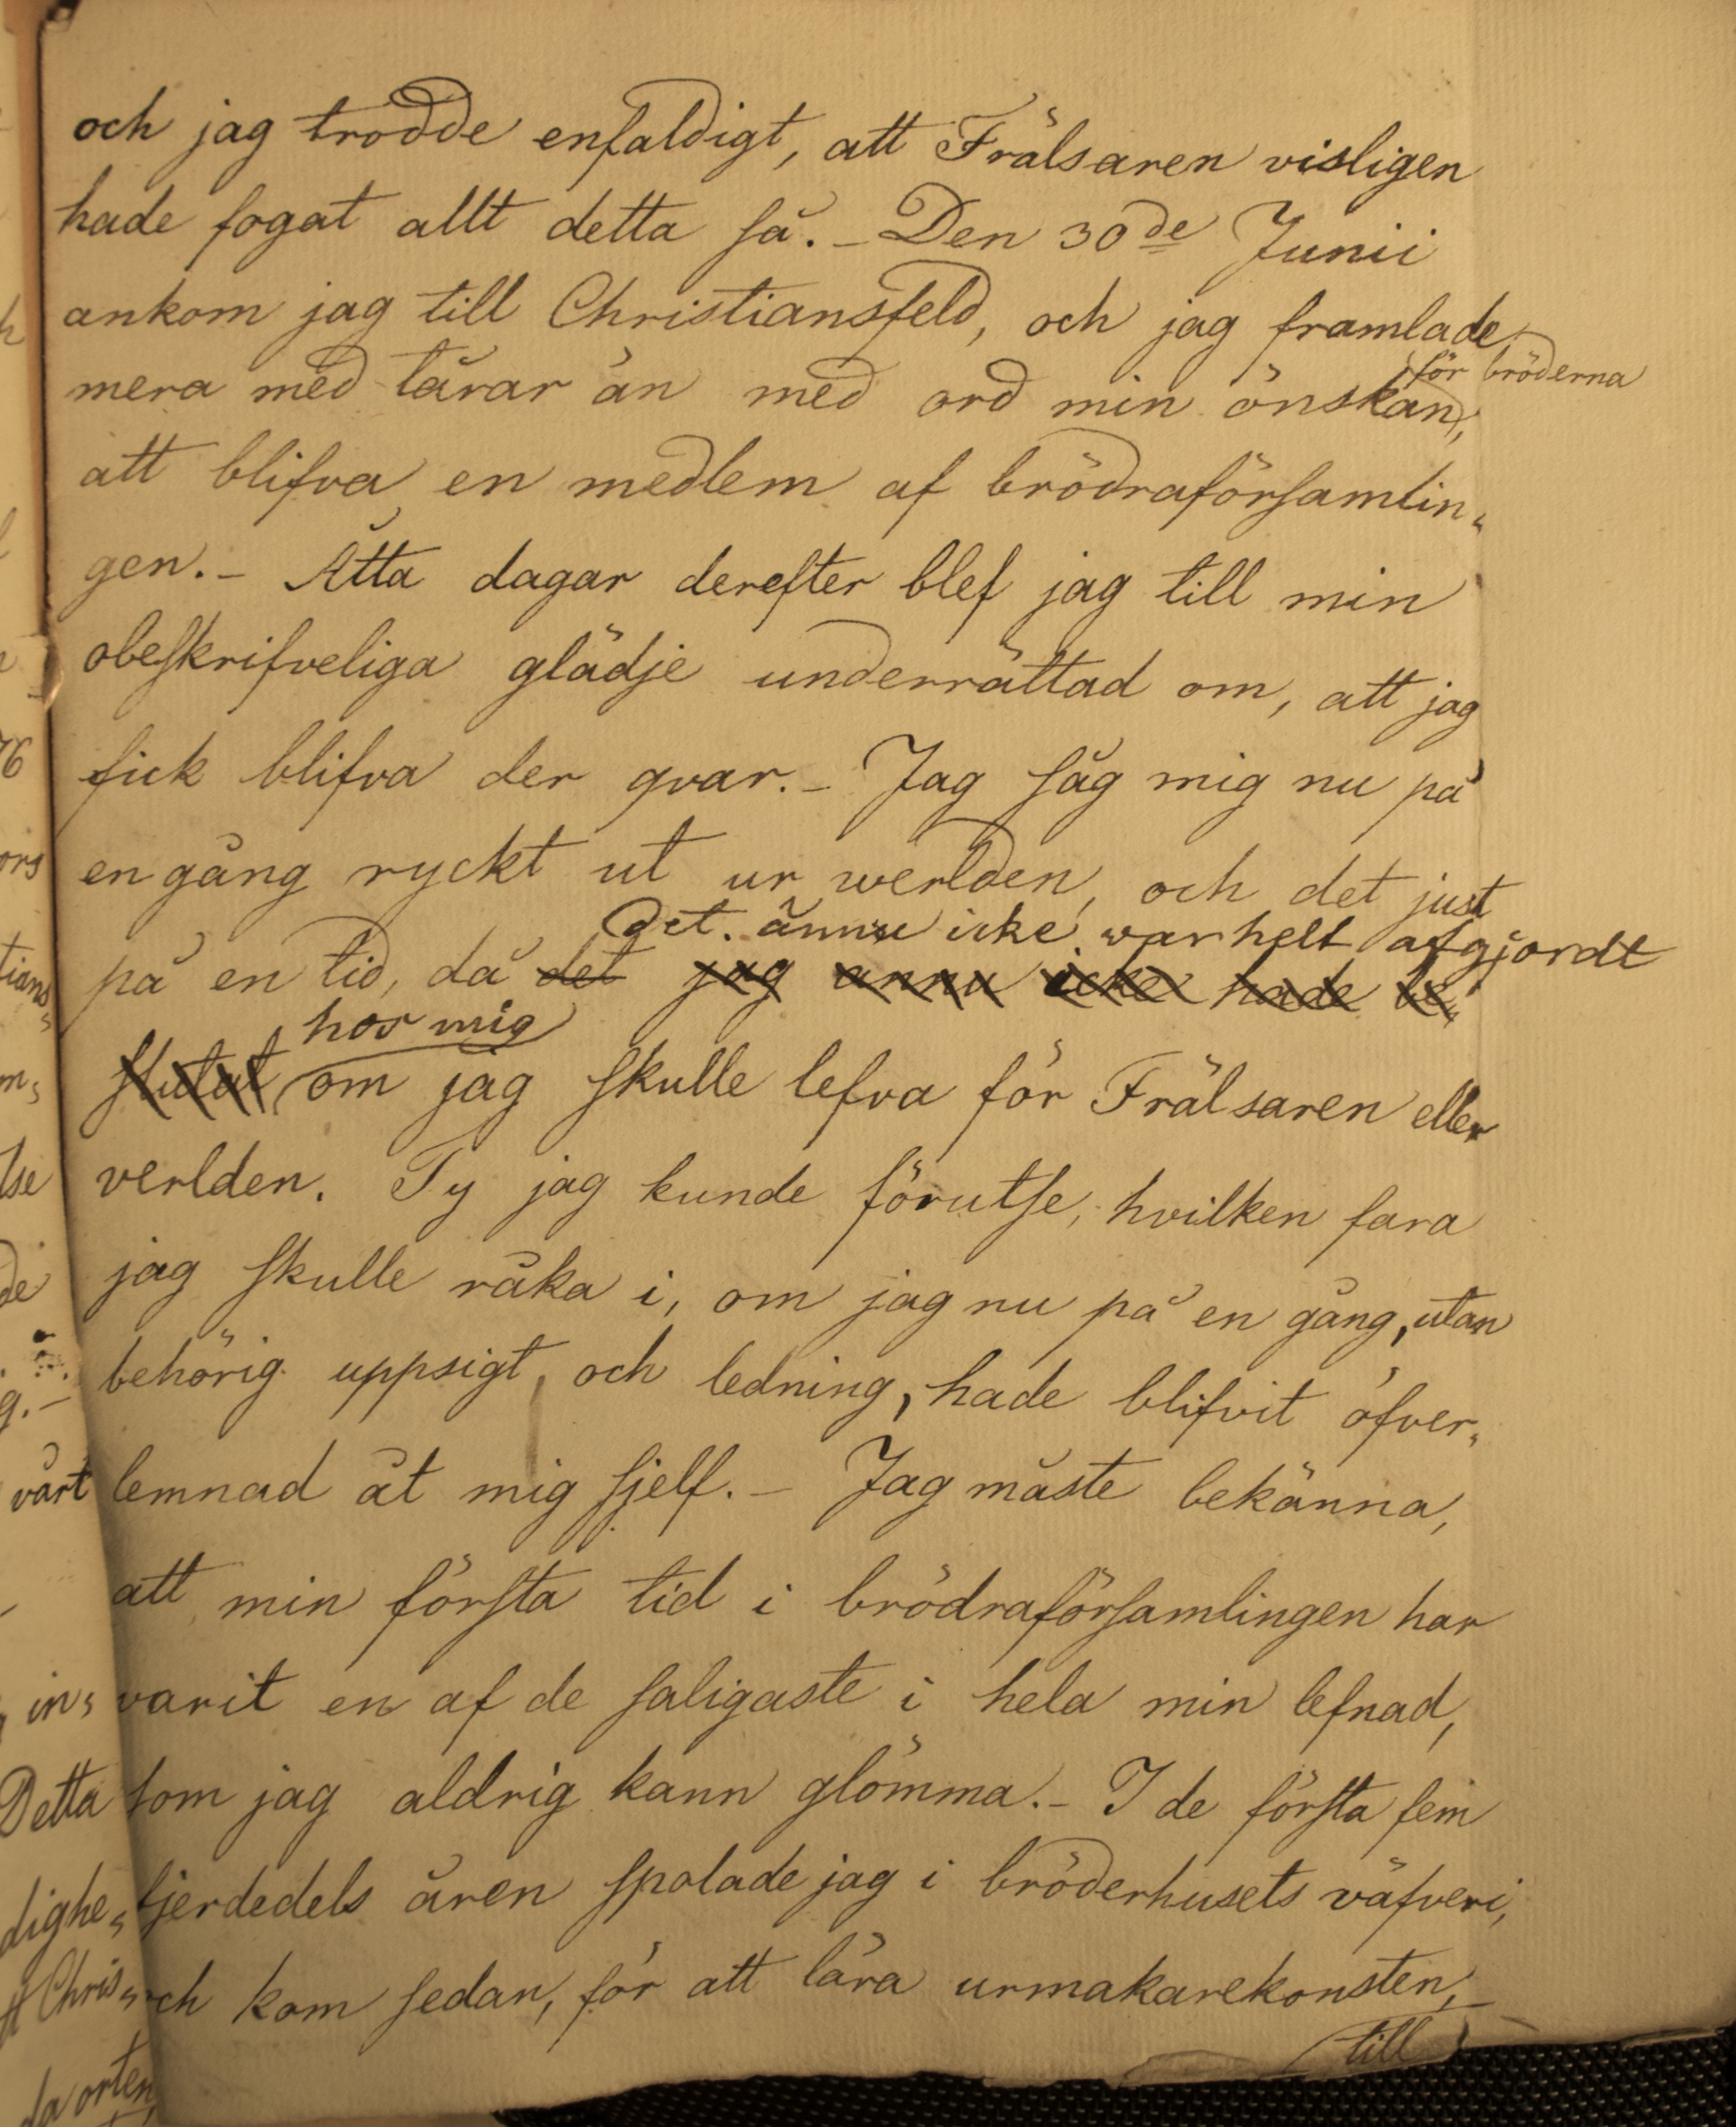 och jag trodde enfaldigt, att Frälsaren visligen
hade fogat allt detta så. – Den 30de Junii
ankom jag till Christiansfeld, och jag framlade
för bröderna
mera med tårar än med ord min önskan,
att blifva en medlem af brödraförsamlin„
gen. – Åtta dagar derefter blef jag till min
obeskrifveliga glädje underrättad om, att jag
fick blifva der qvar. – Jag såg mig nu på
en gång ryckt ut ur werlden, och det just
det ännu icke war helt afgjordt
på en tid, då det jag ännu icke hade be„
hos mig
slutat om jag skulle lefva för Frälsaren eller
verlden. Ty jag kunde förutse, hvilken fara
jag skulle råka i, om jag nu på en gång, utan
behörig uppsigt, och ledning, hade blifvit öfver„
lemnad åt mig sjelf. – Jag måste bekänna,
att min första tid i brödraförsamlingen har
varit en af de saligaste i hela min lefnad,
som jag aldrig kann glömma. – I de första fem
fjerdedels åren spolade jag i bröderhusets väfveri,
och kom sedan, för att lära urmakarekonsten,
till
76
ors
tians„
vårt
in„
Detta
dighe„
Chris„
orten